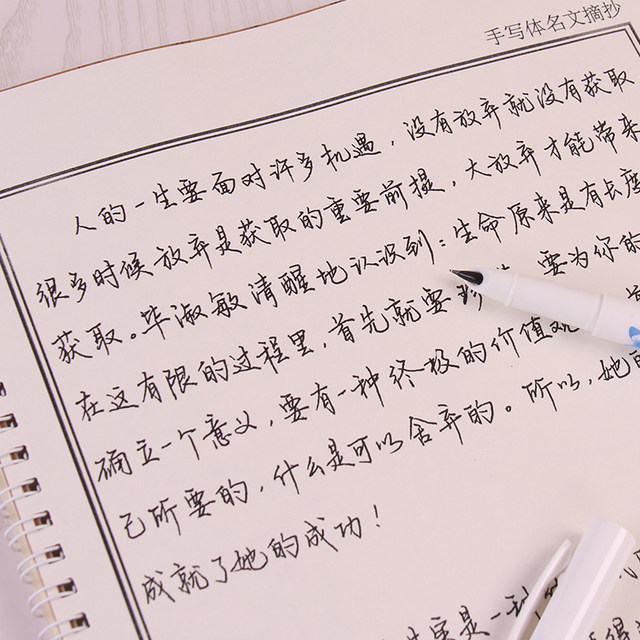 手写体名文摘抄
人的一生要面对许多机遇，没有放弃就没有获取
很多时候放弃是获取的重要前提，大放弃才能带来
获取。毕淑敏清醒地认识到：生命原来是有长度
在这有限的过程里，首先就要 要为你的
确立一个意义，要有一种终极的价值观
己所要的，什么是可以舍弃的。所以，她
成就了她的成功！
是一种